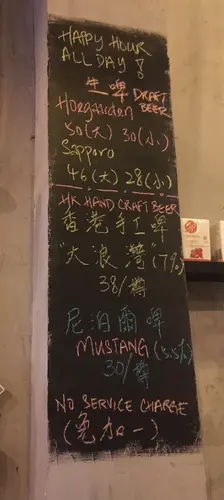 HAPPY HOUR
ALL DAY !
生啤 DRAFT
BEER
Hoegaarden
50(大) 30(小)
Sapporo
46(大) 28(小)
HK HAND CRAFT BEER
香港手工啤
"大浪灣(7%)
38/樽
尼泊爾啤
MUSTANG (5.5%)
30/樽
NO SERVICE CHARGE
(免加一)